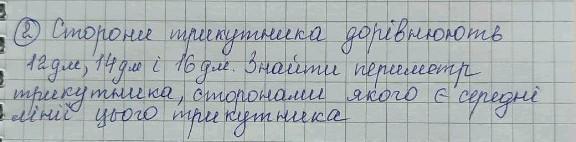 ② Сторони трикутника дорівнюють
12дм, 14дм і 16дм. Знайти периметр
трикутника, сторонами якого є середні
лінії цього трикутника